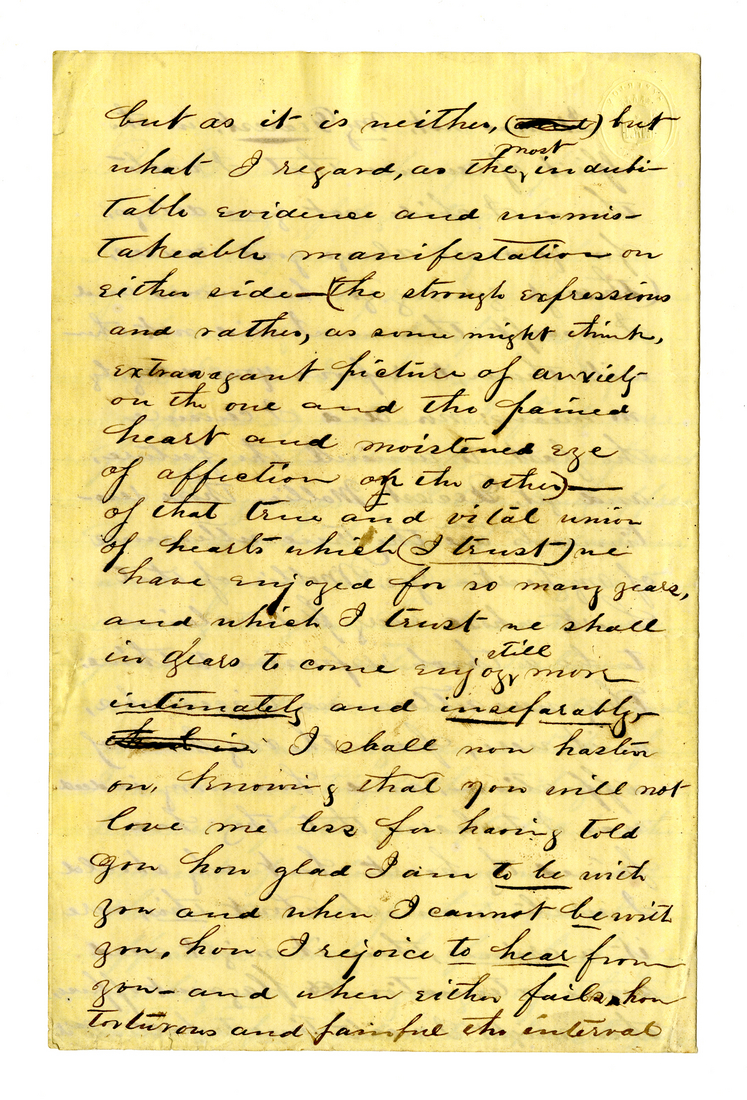 but as it is neither, (and) but
what I regard, as the most indubi-
table evidence and unmis-
takeable manifestation on
either side—(the strong expressions
and rather, as some might think,
extravagant picture of anxiety
on the one and the pained
heart and moistened eye
of affection on the other)—
of that true and vital union
of hearts which (I trust) we
have enjoyed for so many years,
and which I trust we shall
in years to come enjoy still more
intimately and inseparably—
I shall now hasten
on, knowing that you will not
love me less for having told
you how glad I am to be with
you and when I cannot be with
you, how I rejoice to hear from
you— and when either fails, how
torturous and painful the interval